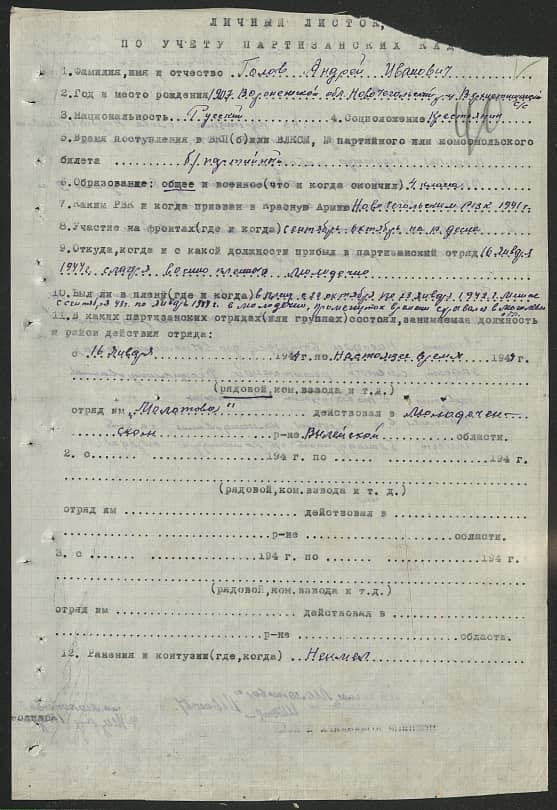 ЛИЧНЫЙ ЛИСТОК,
ПО УЧЕТУ ПАРТИЗАНСКИХ КАД
1.Фамилия,имя и отчество Голов Андрей Иванович
2.Год и место рождения 1907 Воронежской обл. Новочегольский р-н
3.Национальность Русский 4.Соцположение Крестьянин
5.Время поступления в ВКП(б)или ВЛКСМ, № партийного или комсомольского
билета б/партейный
6.Образование: общее и военное(что и когда окончил) 4 класса
7.Каким РВК и когда призван в Красную Армию Новочегольским РВК 1941 г.
8.Участие на фронтах(где и когда) сентябрь-октябрь
9.Откуда,когда и с какой должности прибыл в партизанский отряд 16 Января
1944г. из лагеря военно пленных Молодечно
10.Был ли в плену(где и когда) в плену с 22 октября
11.В каких партизанских отрядах(или группах)состоял,занимаемая должность
и район действия отряда:
с 16 Января 1944 г. по Настоящее время 194 г.
(рядовой,ком.взвода и т.д.)
отряд им „Молотова" действовал в Молодечен-
ском р-не Вилейской области.
2. с 194 г. по 194 г.
(рядовой,ком.взвода и т. д.)
отряд им действовал в
р-не области.
3. с 194 г. по 194 г.
(рядовой,ком.взвода и т.д.)
отряд им действовал в
р-не области.
12. Ранения и контузии(где,когда) Неимел